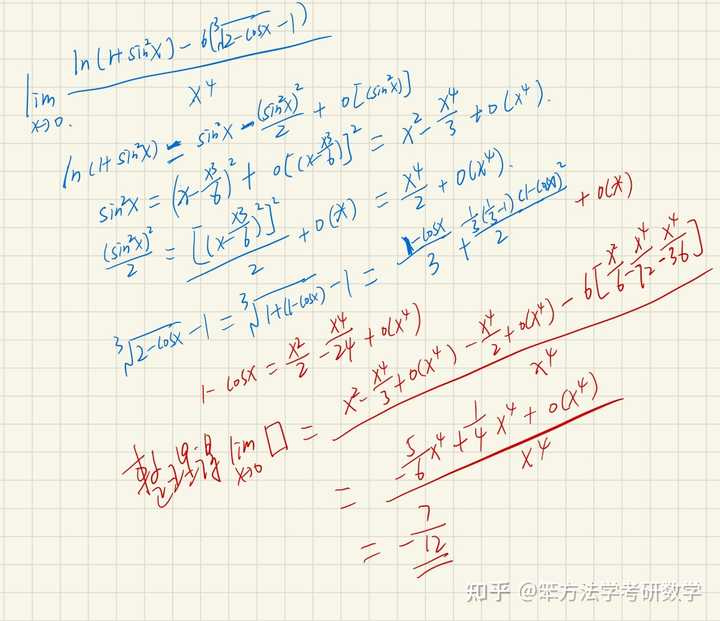 lim x→0 (ln(1+sin²x) - 6(∛(2-cosx) - 1)) / x⁴
ln(1+sin²x) = sin²x - (sin²x)²/2 + o[(sin²x)²]
sin²x = (x - x³/6)² + o[(x - x³/6)]² = x² - x⁴/3 + o(x⁴).
(sin²x)²/2 = [(x - x³/6)²]²/2 + o(x) = x⁴/2 + o(x⁴).
∛(2-cosx) - 1 = ∛(1+(1-cosx)) - 1 = (1-cosx)/3 + (1/3(1/3-1)(1-cosx)²)/2 + o(x)
1-cosx = x²/2 - x⁴/24 + o(x⁴)
整理得 lim x→0 □ = (x² - x⁴/3 + o(x⁴) - x⁴/2 + o(x⁴) - 6[x²/6 - x⁴/72 - x⁴/36]) / x⁴
= (-5/6 x⁴ + 1/4 x⁴ + o(x⁴)) / x⁴
= -7/12
知乎 @笨方法学考研数学